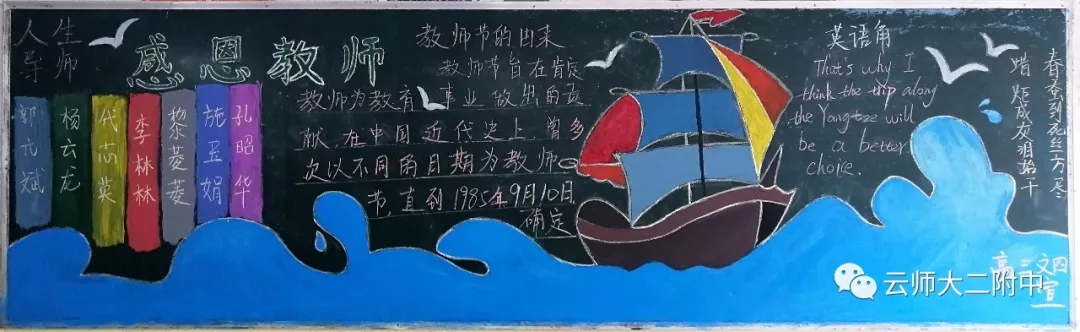 人生
导师
感恩教师
郭元斌
杨云龙
代志英
李林林
黎菱菱
施卫娟
孔昭华
教师节的由来
教师节旨在肯定
教师为教育事业做出的贡
献.在中国近代史上,曾多
次以不同的日期为教师
节,直到1985年9月10日
确定
英语角
That's why I
think the trip along
the Yangtze will
be a better
choice.
春蚕到死丝方尽
蜡炬成灰泪始干
高三文四
宣
云师大二附中